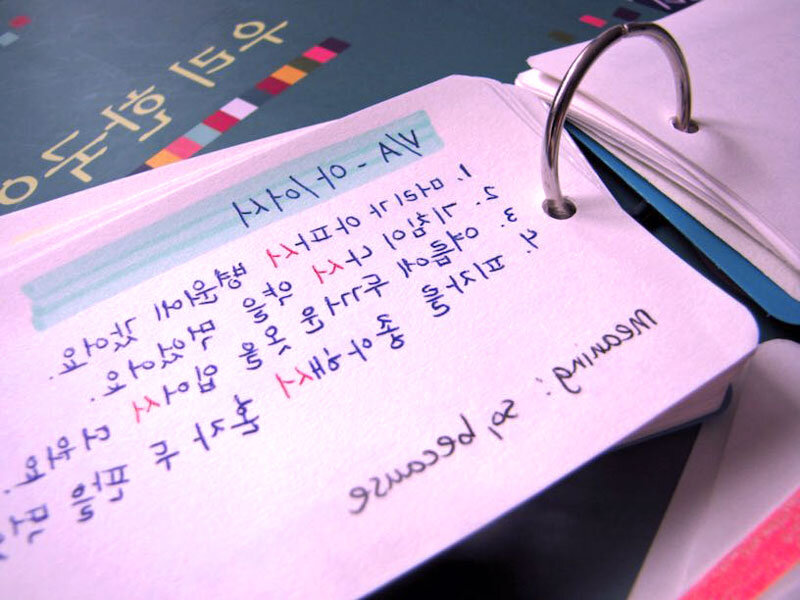 우리 한국
A/V - 아/어서
1. 머리가 아파서 병원에 갔어요.
2. 기침이 나서 약을 먹었어요.
3. 여름에 두꺼운 옷을 입어서 더웠어요.
4. 피자를 좋아해서 혼자 두 판을
meaning: so, because